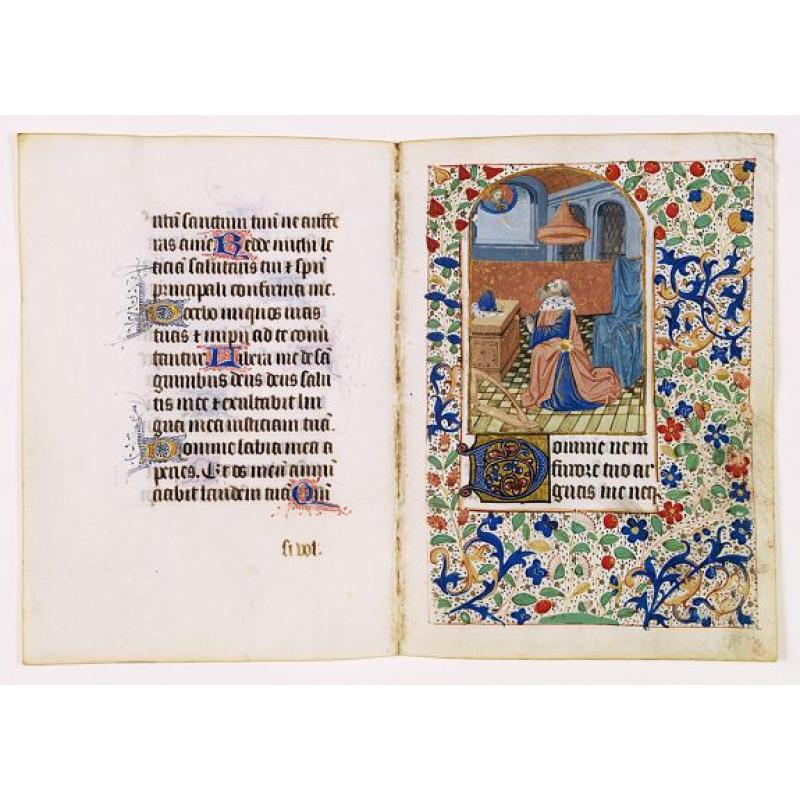 ritū sanctum tuū ne auffe
ras a me Redde michi le
ticiā salutaris tui ⁊ spū
principali confirma me.
Docebo iniquos vias
tuas ⁊ impii ad te conū
tantur Libera me de sā
guinibus deus deus salu
tis mee ⁊ exultabit lin
gua mea iusticiam tuā.
Domine labia mea a
peries. Et os meū annū
ciabit laudem tuā Qm̄
si vol.
Domine ne in
furore tuo ar
guas me neqꝫ